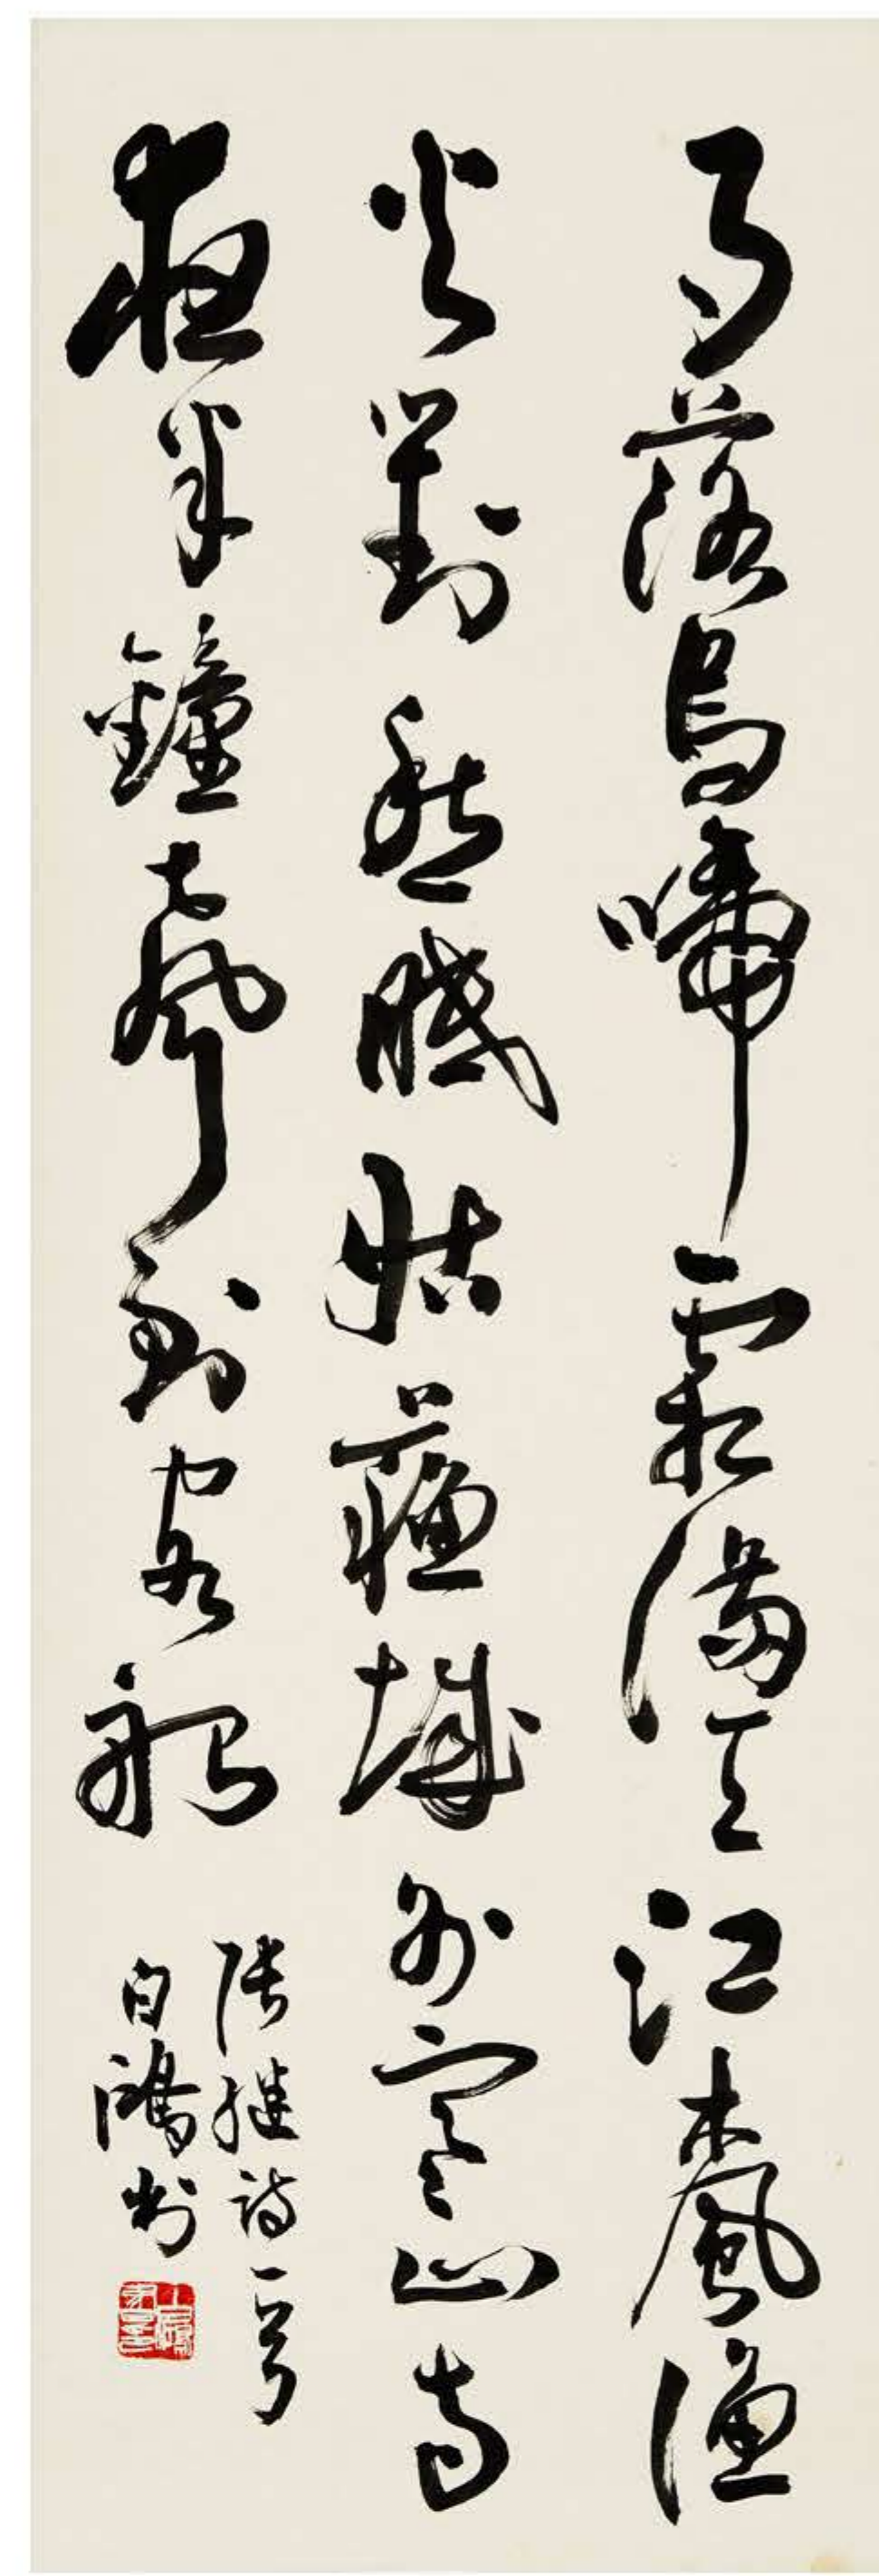 月落烏啼霜滿天江楓漁
火對愁眠姑蘇城外寒山寺
夜半鐘聲到客船
張繼詩一首
白鴻